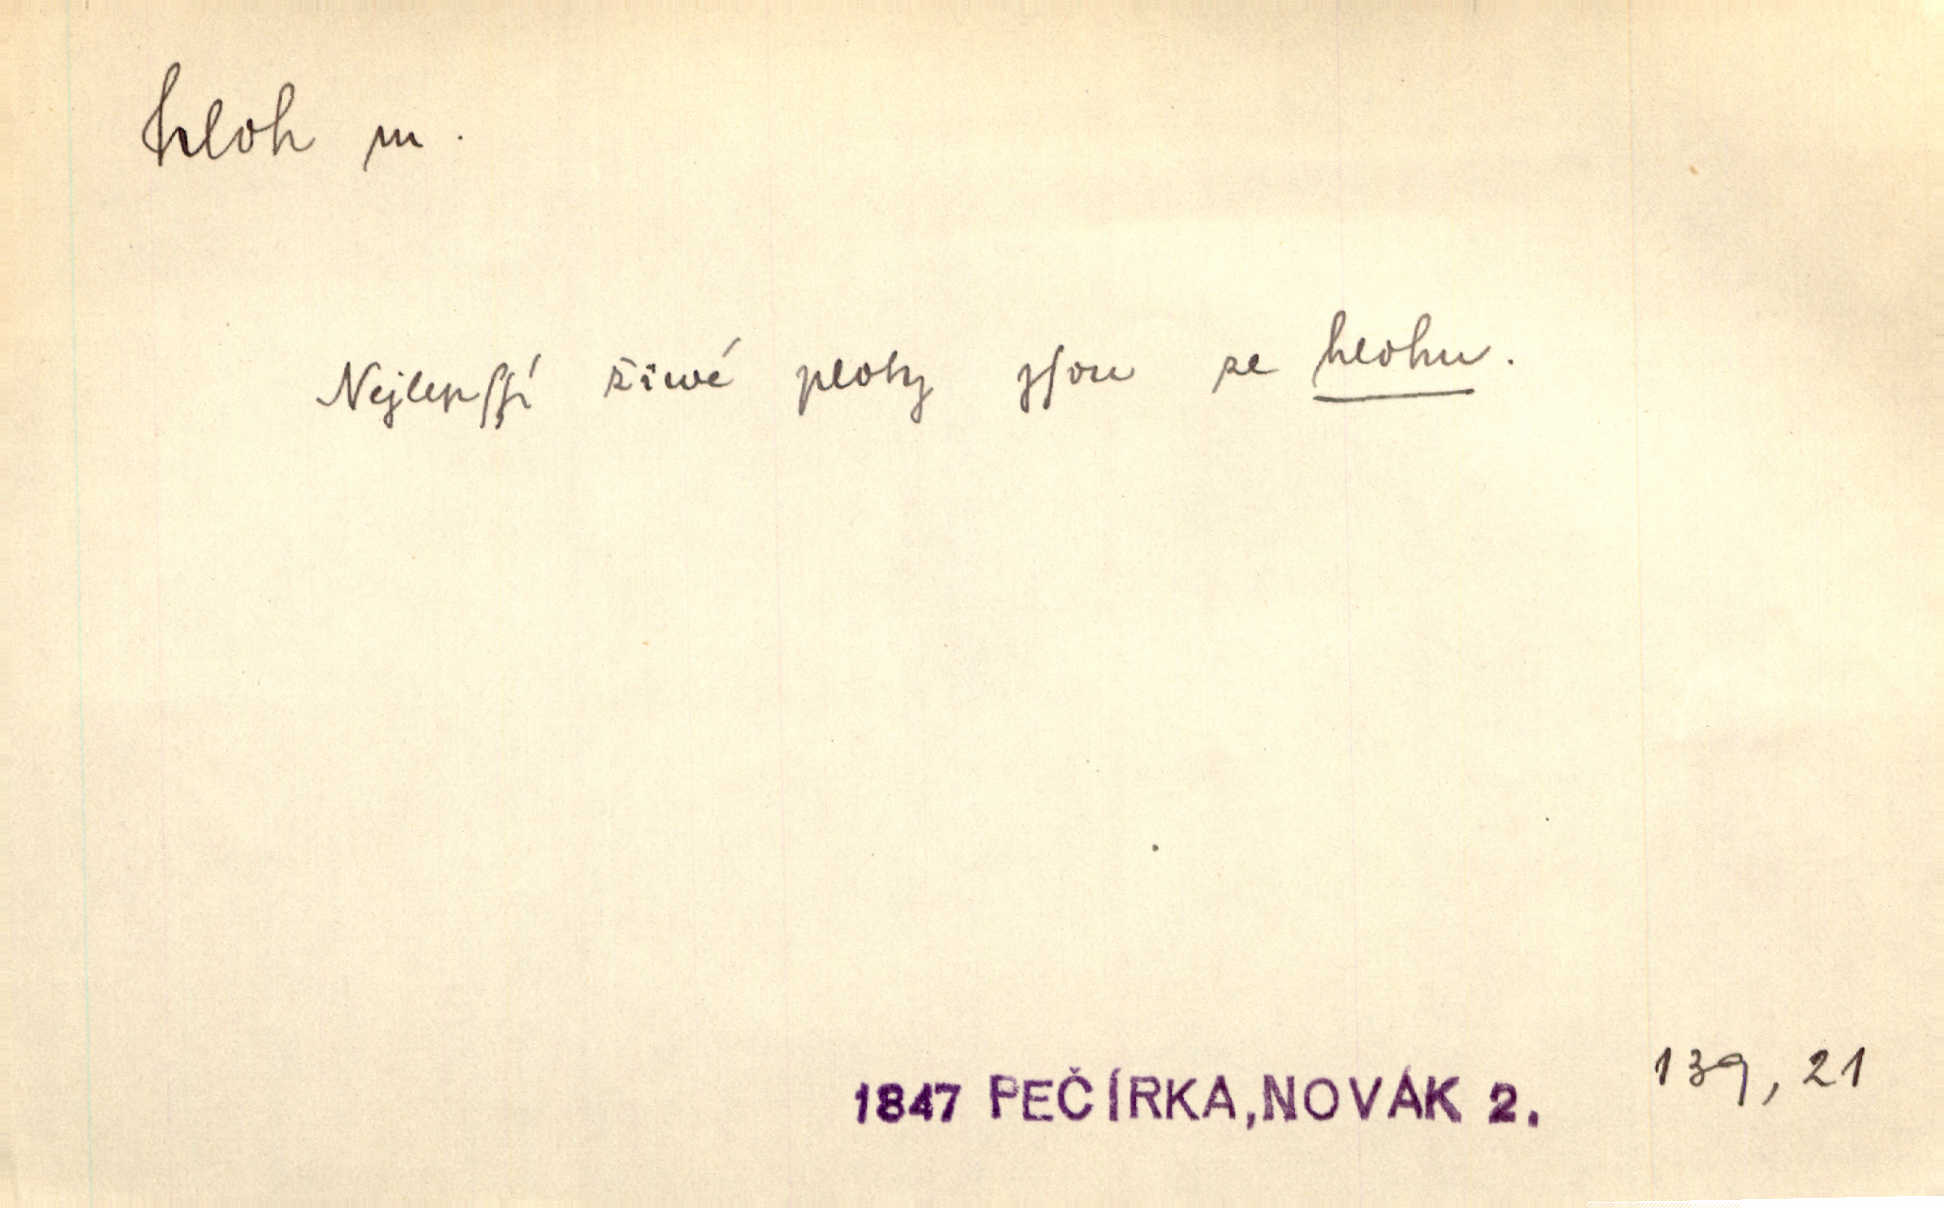 hloh m.
Nejlepſſí žiwé ploty jſou ze hlohu.
1847 PEČÍRKA, NOVÁK 2. 139, 21